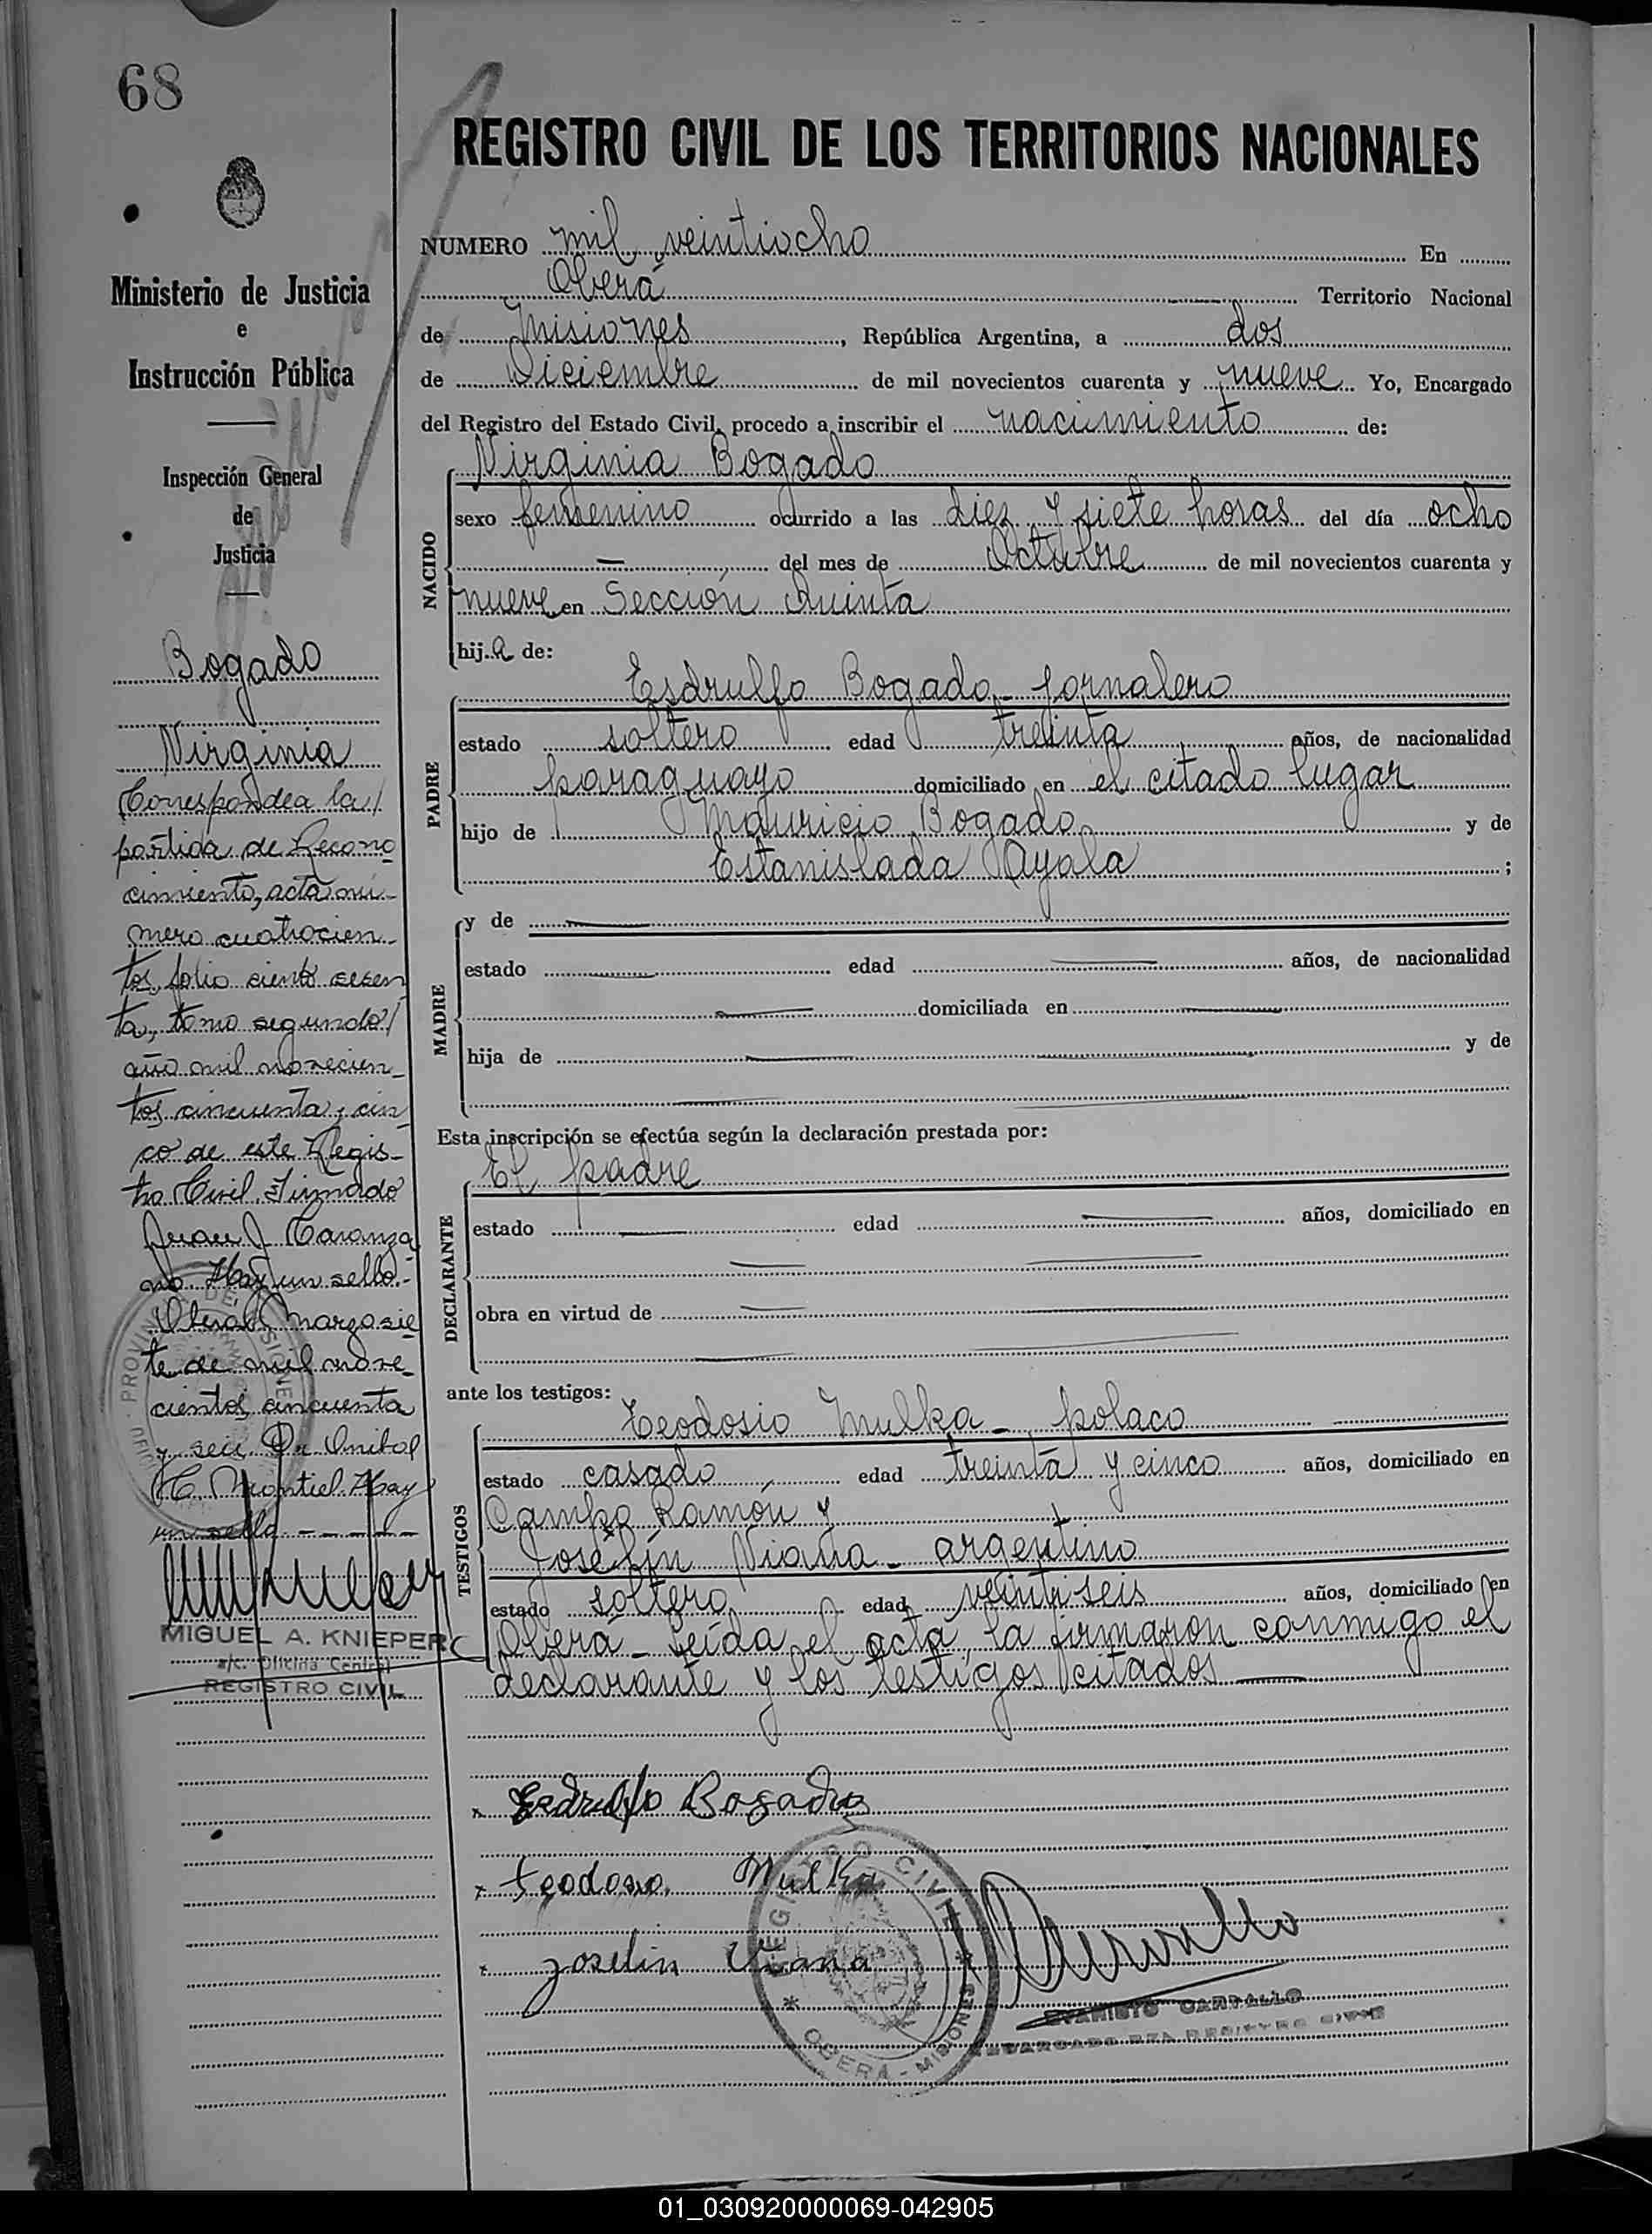 68
Ministerio de Justicia
e
Instrucción Pública
Inspección General
de
Justicia
Bogado
Virginia
Corresponde a la
partida de Recono
cimiento, acta nú-
mero cuatrocien-
tos, folio ciento sesen
ta, tomo segundo
año mil novecien-
tos cincuenta y cin
co de este Regis-
tro Civil. Firmado
Juan J. Taranza
no. Hay un sello.-
Oberá, Marzo sie
te de mil nove-
cientos cincuenta
y seis.
Montiel. Hay
un sello - - - -
MIGUEL A. KNIEPER
a/c. Oficina Central
REGISTRO CIVIL
REGISTRO CIVIL DE LOS TERRITORIOS NACIONALES
NUMERO mil veintiocho En
Oberá Territorio Nacional
de Misiones, República Argentina, a dos
de Diciembre de mil novecientos cuarenta y nueve Yo, Encargado
del Registro del Estado Civil, procedo a inscribir el nacimiento de:
NACIDO
Virginia Bogado
sexo femenino ocurrido a las diez y siete horas del día ocho
— del mes de Octubre de mil novecientos cuarenta y
nueve en Sección Quinta
hija de:
PADRE
Esdrulfo Bogado - jornalero
estado soltero edad treinta años, de nacionalidad
paraguayo domiciliado en el citado lugar
hijo de Mauricio Bogado y de
Estanislada Ayala ;
MADRE
y de
estado edad años, de nacionalidad
domiciliada en
hija de y de
Esta inscripción se efectúa según la declaración prestada por:
DECLARANTE
El padre
estado edad años, domiciliado en
obra en virtud de
ante los testigos:
TESTIGOS
Teodosio Mulka - polaco
estado casado edad treinta y cinco años, domiciliado en
Campo Ramón y
Josélin Viana - argentino
estado soltero edad veintiseis años, domiciliado en
Oberá - Leída el acta, la firmaron conmigo el
declarante y los testigos citados
x Esdrulfo Bogado
x Teodosio Mulka
x Joselin Viana
REGISTRO CIVIL
* OBERÁ - MISIONES *
EVARISTO CARVALLO
ENCARGADO DEL REGISTRO CIVIL
01_030920000069-042905